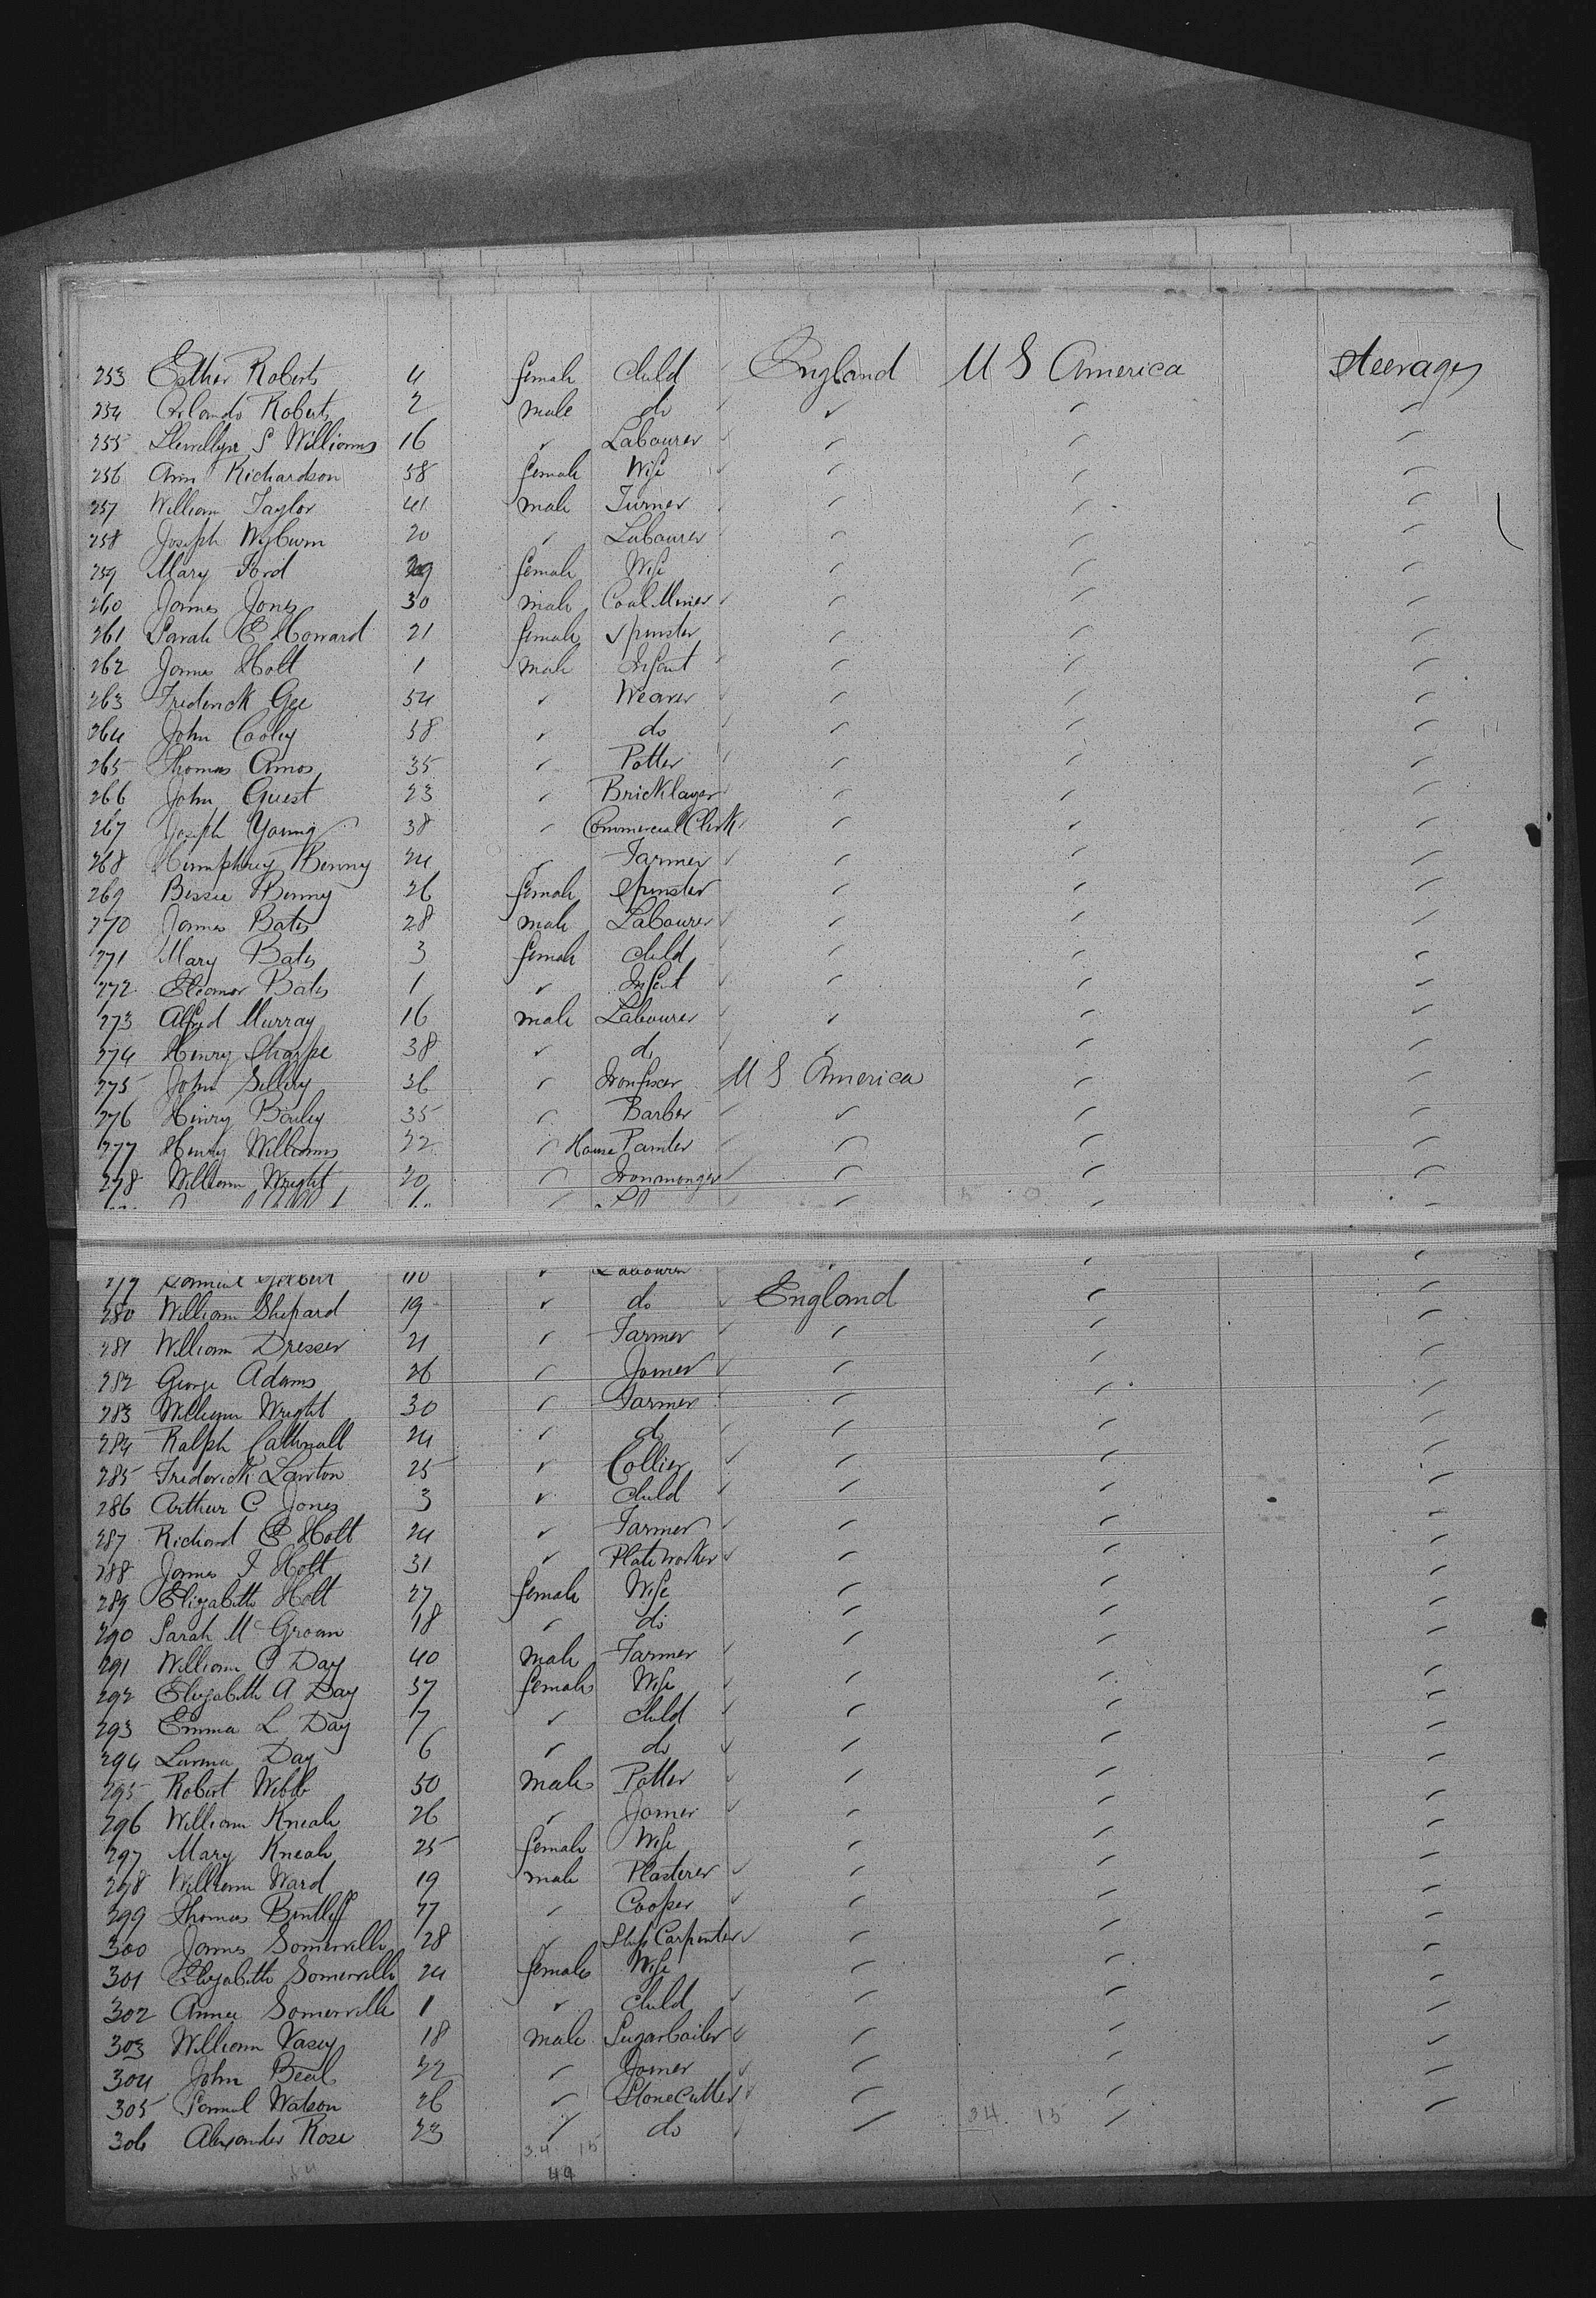 253 Esther Roberts 4 female child England U S America Steerage
254 Orlando Roberts 2 male do ✓ ✓ ✓
255 Llewellyn S Williams 16 ✓ Labourer ✓ ✓ ✓
256 Ann Richardson 58 female Wife ✓ ✓ ✓
257 William Taylor 41 male Turner ✓ ✓ ✓
258 Joseph Wyburn 20 ✓ Labourer ✓ ✓ ✓
259 Mary Ford 29 female Wife ✓ ✓ ✓
260 James Jones 30 male Coal Miner ✓ ✓ ✓
261 Sarah E Howard 21 female Spinster ✓ ✓ ✓
262 James Holt 1 male Infant ✓ ✓ ✓
263 Frederick Gee 54 ✓ Weaver ✓ ✓ ✓
264 John Cooley 58 ✓ do ✓ ✓ ✓
265 Thomas Amos 35 ✓ Potter ✓ ✓ ✓
266 John Guest 23 ✓ Bricklayer ✓ ✓ ✓
267 Joseph Young 38 ✓ Commercial Clerk ✓ ✓ ✓
268 Humphrey Benny 24 ✓ Farmer ✓ ✓ ✓
269 Bessie Benny 26 female Spinster ✓ ✓ ✓
270 James Bates 28 male Labourer ✓ ✓ ✓
271 Mary Bates 3 female child ✓ ✓ ✓
272 Eleanor Bates 1 ✓ Infant ✓ ✓ ✓
273 Alfred Murray 16 male Labourer ✓ ✓ ✓
274 Henry Sharpe 38 ✓ do ✓ ✓ ✓
275 John Sillery 36 ✓ U S America ✓ ✓
276 Henry 35 ✓ Barber ✓ ✓ ✓
277 Henry Williams 22 ✓ House Painter ✓ ✓ ✓
278 William Wright 20 ✓ Ironmonger ✓ ✓ ✓
279 Samuel Gilbert 40 ✓ Labourer ✓ ✓
280 William Shepard 19 ✓ do England ✓ ✓
281 William Dresser 21 ✓ Farmer ✓ ✓ ✓
282 George Adams 26 ✓ Joiner ✓ ✓ ✓
283 William Wright 30 ✓ Farmer ✓ ✓ ✓
284 Ralph Cathnall 24 ✓ do ✓ ✓ ✓
285 Frederick Lawton 25 ✓ Collier ✓ ✓ ✓
286 Arthur C Jones 3 ✓ child ✓ ✓ ✓
287 Richard E Holt 24 ✓ Farmer ✓ ✓ ✓
288 James F Holt 31 ✓ Plate Worker ✓ ✓ ✓
289 Elizabeth Holt 27 female Wife ✓ ✓ ✓
290 Sarah M Groom 18 ✓ do ✓ ✓ ✓
291 William C Day 40 male Farmer ✓ ✓ ✓
292 Elizabeth A Day 37 female Wife ✓ ✓ ✓
293 Emma L Day 7 ✓ child ✓ ✓ ✓
294 Day 6 ✓ do ✓ ✓ ✓
295 Robert Webb 50 male Potter ✓ ✓ ✓
296 William Kneale 26 ✓ Joiner ✓ ✓ ✓
297 Mary Kneale 25 female Wife ✓ ✓ ✓
298 William Ward 19 male Plasterer ✓ ✓ ✓
299 Thomas Bentliff 27 ✓ Cooper ✓ ✓ ✓
300 James Somerville 28 ✓ Ship Carpenter ✓ ✓ ✓
301 Elizabeth Somerville 24 female Wife ✓ ✓ ✓
302 Annie Somerville 1 ✓ child ✓ ✓ ✓
303 William Vasey 18 male Sugarboiler ✓ ✓ ✓
304 John Beal 22 ✓ Joiner ✓ ✓ ✓
305 Samuel Watson 26 ✓ Stonecutter ✓ ✓ ✓
306 Alexander Rose 23 ✓ do ✓ ✓ ✓
34 15 34 15
49